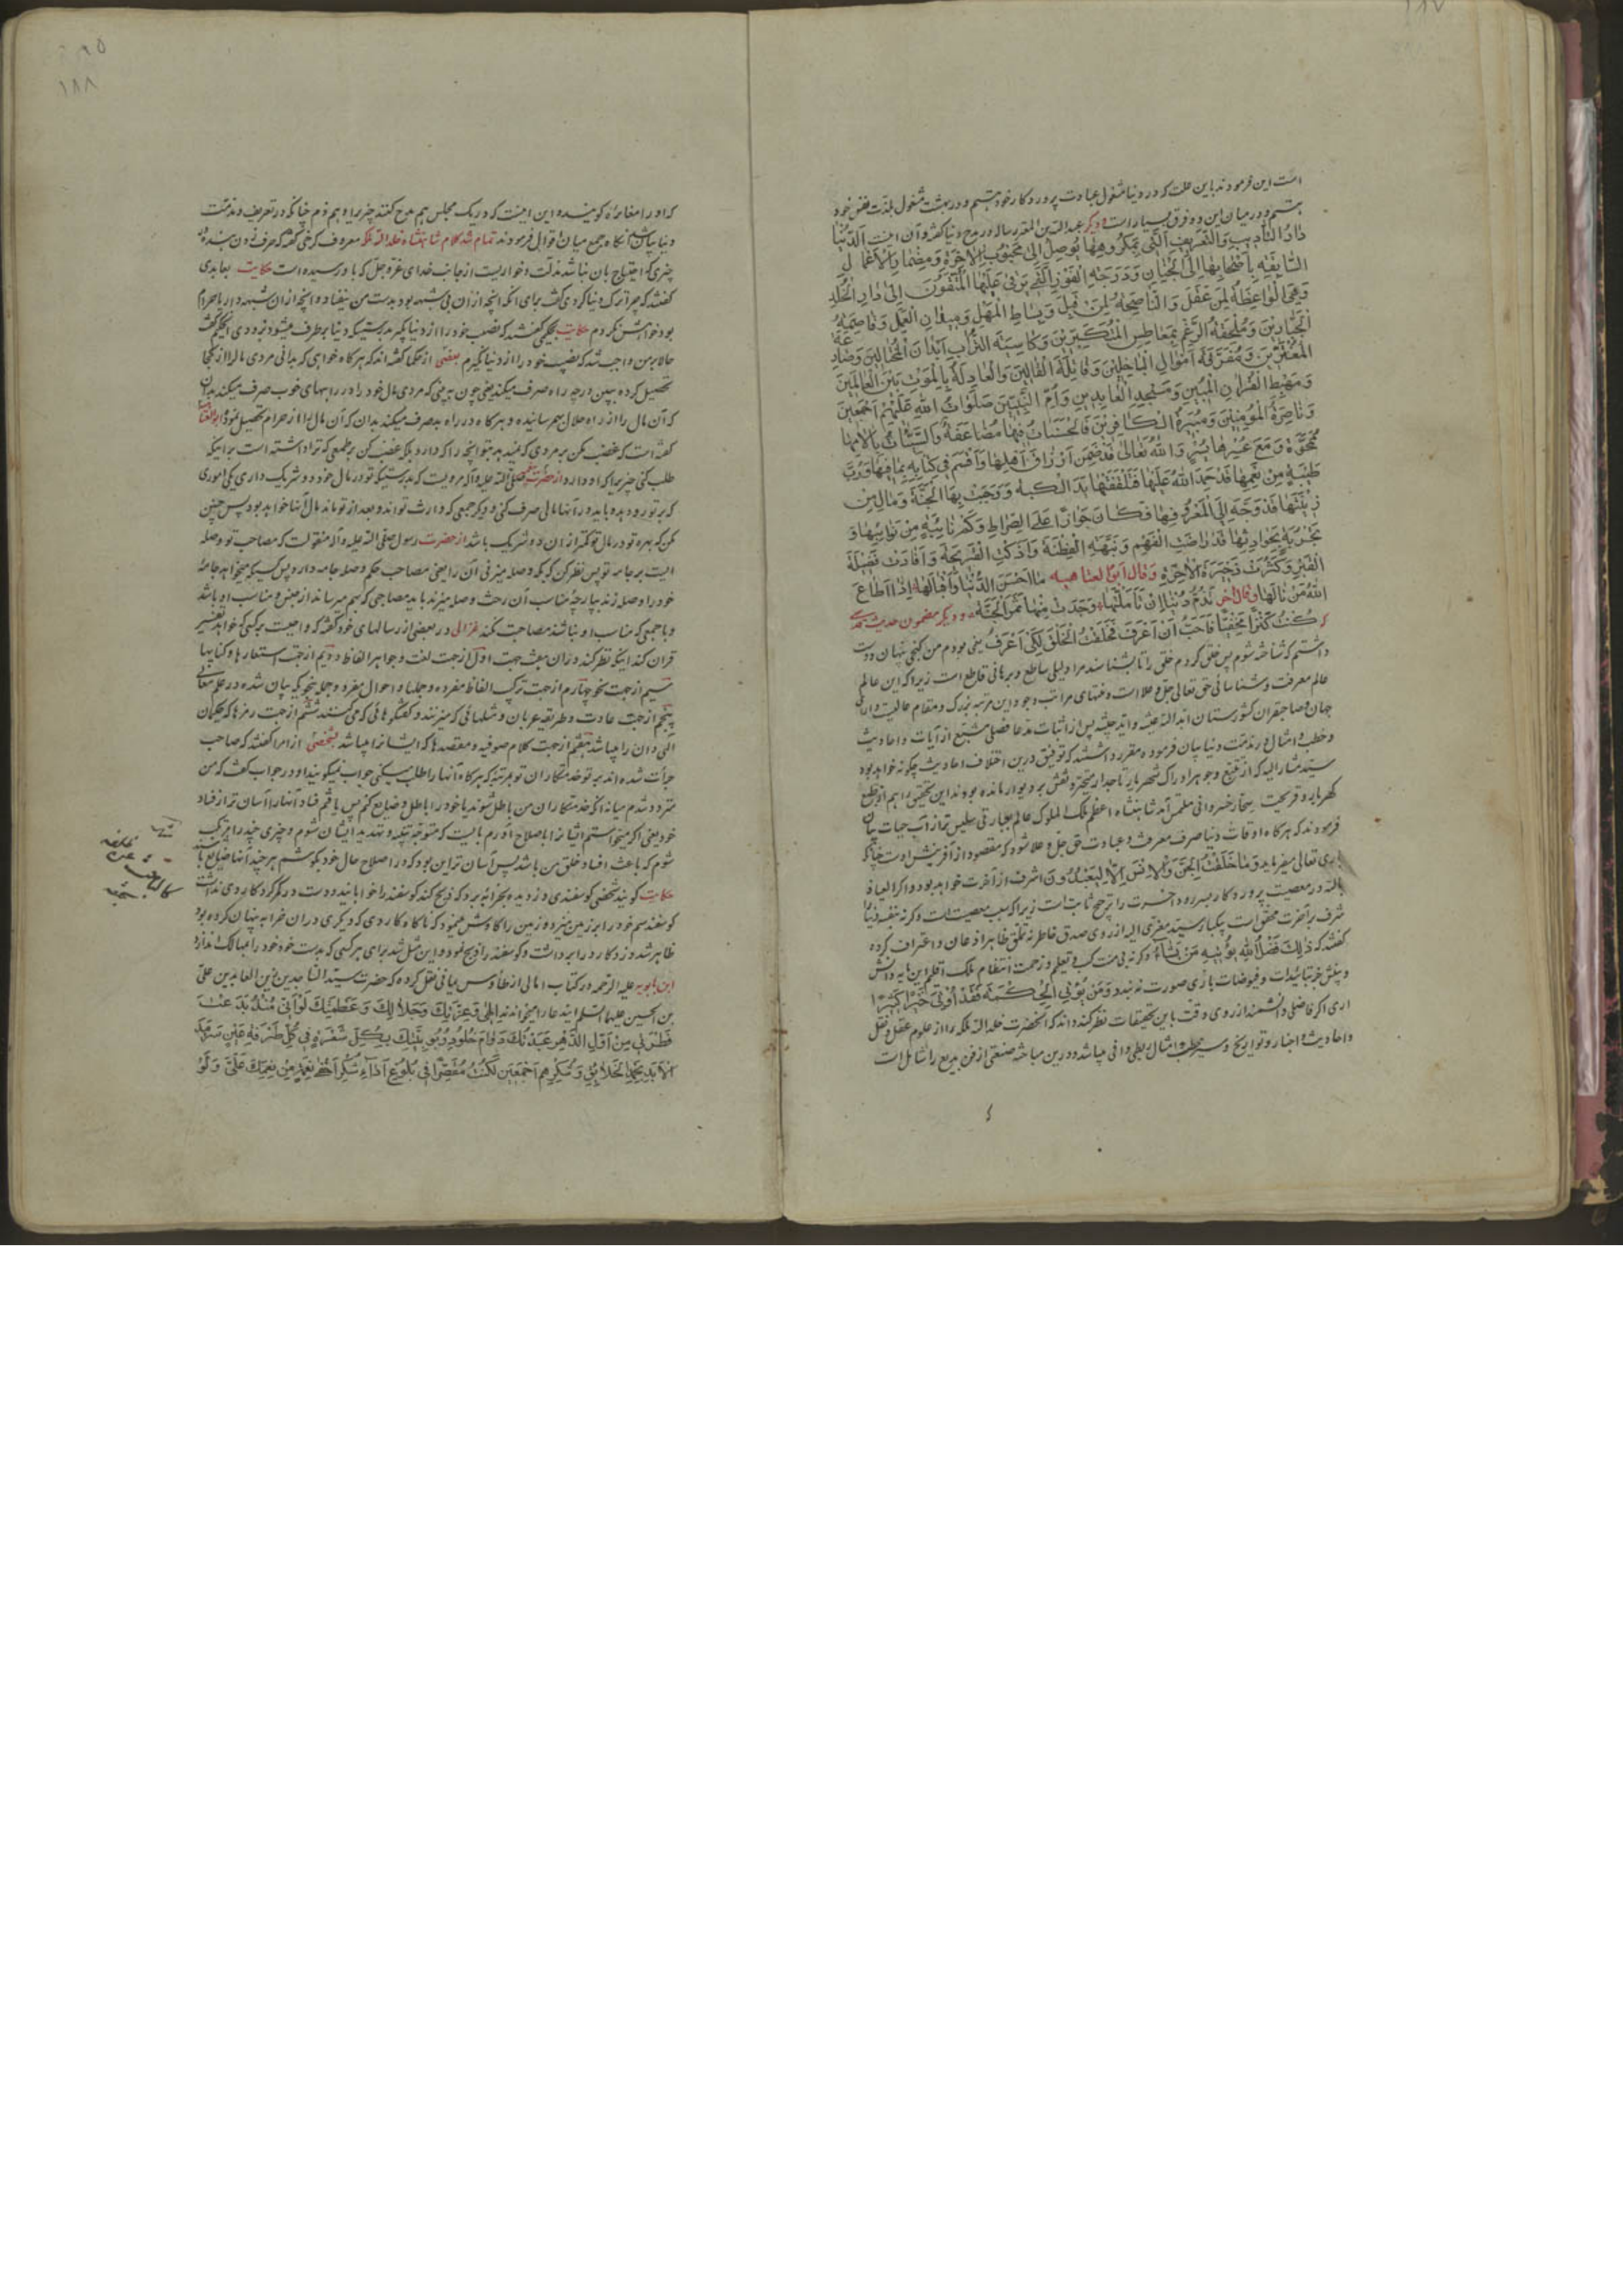 ۱۸۷
است این فرمودند باین علت که در دنیا مشغول عبادت پروردکار خود هستم و در بهشت مشغول بلذت نفس خود
هستم و در میان این دو فرق بسیار است و دیگر عبدالله بن المعتز رساله در مدح دنیا گفته و آن اینست الدُّنْیا
دارُ التَّأدیبِ وَالتَّعْریفِ الَّتی بِمَکْرُوهِها یُوصَلُ اِلی مَحْبُوبِ الآخِرَةِ وَمِضْمارُ الْاَعْمالِ
السّابِقَةِ بِاَصْحابِها اِلَی الْجِنانِ وَدَرَجَةُ الْفَوْزِ الَّتی یَرْتَقی عَلَیْهَا الْمُتَّقُونَ اِلی دارِ الْخُلْدِ
وَهِیَ الْواعِظَةُ لِمَنْ عَقَلَ وَالنّاصِحَةُ لِمَنْ قَبِلَ وَبِساطُ الْمَهَلِ وَمیدانُ الْعَمَلِ وَقاصِمَةُ
الْجَبّارینَ وَمُلْحِقَةُ الرَّغْمِ بِمَعاطِسِ الْمُتَکَبِّرینَ وَکاسِیَةُ التُّرابِ اَبْدانَ الْمُخْتالینَ وَصارِعَةُ
الْمُغْتَرّینَ وَمُفَرِّقَةُ اَمْوالِ الْباخِلینَ وَقاتِلَةُ الْقاتِلینَ وَالْعادِلَةُ بِالْمَوْتِ بَیْنَ الْعالَمینَ
وَمَهْبِطُ الْقُرْآنِ الْمُبینِ وَمَسْجِدُ الْعابِدینَ وَاُمُّ النَّبِیّینَ صَلَواتُ اللهِ عَلَیْهِمْ اَجْمَعینَ
وَناصِرَةُ الْمُؤْمِنینَ وَمُبیرَةُ الْکافِرینَ فَالْحَسَناتُ فیها مُضاعَفَةٌ وَالسَّیِّئاتُ بِآلامِها
مَمْحُوَّةٌ وَمَعَ عُسْرِها یُسْرٌ وَاللهُ تَعالی قَدْ ضَمِنَ اَرْزاقَ اَهْلِها وَاَقْسَمَ فی کِتابِهِ بِما فیها وَرُبَّ
طَیِّبَةٍ مِنْ نِعَمِها قَدْ حُمِدَ اللهُ عَلَیْها فَتَلَقَّفَتْها یَدُ الْکَتَبَةِ وَوَجَبَتْ بِهَا الْجَنَّةُ وَمالٍ مِنْ
زینَتِها قَدْ وُجِّهَ اِلَی الْمَعْرُوفِ فیها فَکانَ جَوازًا عَلَی الصِّراطِ وَکَمْ نائِبَةٍ مِنْ نَوائِبِها وَ
الْفَقْرَ وَکَثَّرَتْ ذَخیرَةَ الْآخِرَةِ وَقالَ اَبُو الْعَتاهِیَه ما اَحْسَنَ الدُّنْیا وَاِقْبالَها اِذا اَطاعَ
اللهَ مَنْ نالَها وقال آخر نَذُمُّ دُنْیا اِنْ تَاَمَّلْتَها وَجَدْتَ مِنْها ثَمَنَ الْجَنَّة و دیگر مضمون حدیث قدسی
که کُنْتُ کَنْزًا مَخْفِیًّا فَاَحْبَبْتُ اَنْ اُعْرَفَ فَخَلَقْتُ الْخَلْقَ لِکَیْ اُعْرَفَ یعنی بودم من کنجی پنهان دوست
داشتم که شناخته شوم پس خلق کردم خلق را تا بشناسند مرا دلیلی ساطع و برهانی قاطع است زیرا که این عالم
عالم معرفت و شناسائی حق تعالی جل و علا است و منتهای مراتب وجود این مرتبه بزرک و مقام عالیست
جهان و صاحبقران کشورستان پس از اثبات مدعا فضلی متتبع از آیات و احادیث
و خطب و امثال در مذمت دنیا بیان فرموده مقرر داشتند که توفیق درین اختلاف احادیث چکونه خواهد بود
فرمودند که هرکاه اوقات دنیا صرف معرفت و عبادت حق جل و علا شود که مقصود از آفرینش اوست چنانکه
باری تعالی میفرماید وَما خَلَقْتُ الْجِنَّ وَالْاِنْسَ اِلّا لِیَعْبُدُونَ اشرف از آخرت خواهد بود و اکر العیاذ
بالله در معصیت پروردکار بسر رود آخرت را ترجیح ثابت است زیرا که سبب معصیت است وکرنه
کفتند که ذلِکَ فَضْلُ اللهِ یُؤْتیهِ مَنْ یَشاءُ وکرنه بی منت کسب و تعلم و زحمت انتظام ملک اقلیم این پایه دانش
و بینش جز بتائیدات و فیوضات باری صورت نه بندد وَمَنْ یُؤْتَ الْحِکْمَةَ فَقَدْ اُوتِیَ خَیْرًا کَثیرًا
اری اکر فاضلی دانشمند از روی دقت باین تحقیقات نظر کند داند که انحضرت خلد الله ملکه را از علوم عقلی و نقلی
و احادیث و اخبار و تواریخ و سیر و خطب و امثال بطی وافی میباشد و درین مباحثه صنعتی از فن بدیع را شامل است
۱۸۸
که اورا مغایره کویند و این اینست که در یک مجلس هم مدح کنند چیزیرا و هم ذم چنانکه در تعریف و مذمت
دنیا بیان شد انکاه جمع میان اقوال فرمودند تمام شد کلام شاهنشاه خلد الله ملکه معروف کرخی گفته که حرف زدن بنده در
چیزی که احتیاج بان نباشد مذلت و خواریست از جانب خدای عزوجل که باو رسیده است حکایت بعابدی
کفتند که چرا ترک دنیا کردی کفت برای انکه انچه از ان بی شبهه بود بدست من نیفتاد و انچه از ان شبهه دار یا حرام
بود خواهش نکردم حکایت بحکیمی گفتند که نصیب خود را از دنیا بکیر بدرستیکه دنیا برطرف میشود بزودی حکیم کفت
حالا بر من واجب شد که نصیب خود را از دنیا نکیرم بعضی از حکما گفته اند که هرکاه خواهی که بدانی مردی مال را از کجا
تحصیل کرده ببین در چه راه صرف میکند یعنی چون ببینی که مردی مال خود را در راههای خوب صرف میکند بدان
که آن مال را از راه حلال بهم رسانیده و هرکاه در راه بد صرف میکند بدان که آن مال را از حرام تحصیل نموده ابو العتاهیه
کفته است که غضب مکن بر مردی که نمیدهد بتو انچه را که دارد بلکه غضب کن بر طمعی که ترا داشته است بر اینکه
طلب کنی چیزیرا که او دارد از حضرت پیغمبر صلی الله علیه وآله مرویست که بدرستیکه تو در مال خود دو شریک داری یکی اموری
که بر تو رو دهد و باید در آنها مالی صرف کنی و دیکر جمعی که وارث تواند و بعد از تو ماند مال آنها خواهد بود پس چنین
مکن که بهره تو در مال تو کمتر از ان دو شریک باشد از حضرت رسول صلی الله علیه وآله منقولست که مصاحب تو وصله
ایست بر جامه تو پس نظر کن که بکه وصله میزنی آن را یعنی مصاحب حکم وصله جامه دارد پس کسیکه میخواهد جامه
خود را وصله زند بپارچه مناسب آن رخت وصله میزند باید مصاحبی که بهم میرساند از جنس و مناسب او باشد
و با جمعی که مناسب او نباشند مصاحبت نکند غزالی در بعضی از رسالهای خود گفته که واجبست بر کسی که خواهد تفسیر
قران کند اینکه نظر کند در ان بهشت جهت اول از جهت لغت و جواهر الفاظ دویم از جهت استعارها و کنایها
سیم از جهت نحو چهارم از جهت ترکیب الفاظ مفرده و جملها و احوال مفرد و جمله بنحویکه بیان شده در علم معانی
پنجم از جهت عادت و طریقه عربان و مثلهائی که میزنند و کفتکوهائی که می کنند ششم از جهت رمزها که حکیمان
الهی دران را میباشد هفتم از جهت کلام صوفیه و مقصدها که ایشانرا میباشد شخصی از امرا کفتند که صاحب
جرأت شده اند بر تو خدمتکاران تو بمرتبه که هرکاه آنها را طلب میکنی جواب نمیکویند او در جواب کفت که من
متردد شدم میانه آنکه خدمتکاران من باطل شوند یا خود را باطل و ضایع کنم پس یافتم فساد آنها را آسان تر از فساد
خود یعنی اکر میخواستم ایشانرا باصلاح آورم بایست که متوجه تنبیه و تهدید ایشان شوم و چیزی چند را مرتکب
شوم که باعث افساد خلق من باشد پس آسان تر این بود که در اصلاح حال خود بکوشم هرچند آنها ضایع باشند
حکایت کویند شخصی کوسفندی دزدیده بخرابه برد که ذبح کند کوسفند را خوابانید و دست در کمر کرد کاردی نداشت
کوسفند سم خود را بر زمین میزد و زمین را کاوش مینمود که ناکاه کاردی که دیکری در ان خرابه پنهان کرده بود
ظاهر شد دزد کارد را برداشت و کوسفند را ذبح نمود و این مثل شد برای هر کسی که بدست خود خود را بمهالک اندازد
ابن بابویه علیه الرحمه در کتاب امالی از طاوس یمانی نقل کرده که حضرت سید الساجدین زین العابدین علی
بن الحسین علیهما السلم این دعا را میخواندند اِلهی وَعِزَّتِکَ وَجَلالِکَ وَعَظَمَتِکَ لَوْ اَنّی مُنْذُ بَدَعْتَ
فِطْرَتی مِنْ اَوَّلِ الدَّهْرِ عَبَدْتُکَ دَوامَ خُلُودِ رُبُوبِیَّتِکَ بِکُلِّ شَعْرَةٍ فی کُلِّ طَرْفَةِ عَیْنٍ سَرْمَدَ
الْاَبَدِ بِحَمْدِ الْخَلائِقِ وَشُکْرِهِمْ اَجْمَعینَ لَکُنْتُ مُقَصِّرًا فی بُلُوغِ اَداءِ شُکْرِ اَخْفی نِعْمَةٍ مِنْ نِعَمِکَ عَلَیَّ وَلَوْ